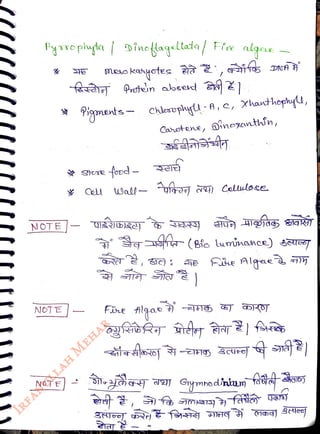 Pyrrophyta / Dinoflagellata / Fire algae –
* यह mesokaryotes होते हैं, क्योंकि DNA में
हिस्टोन Protein absent होती हैं।
* Pigments – Chlorophyll - A, C, Xhanthophyll,
Carotene, Dinoxanthin,
* Store food – स्टार्च
* Cell Wall – पेक्टिन तथा Cellulose
NOTE – पाइरोफाइटा के सदस्य अपने प्राकृतिक आवासों
में जैव (Bio luminance) उत्पन्न
करते हैं, अतः यह Fire Algae के नाम
से जाने जाते हैं।
NOTE – Fire Algae में चमक का कारण
ल्युसिफेरिन प्रोटीन होता है। जिसके
ऑक्सीकरण से चमक उत्पन्न की जाती है।
NOTE – तथा Gymnodinium विषैली
होती है, जो कि जलाशय में विषैली पदार्थ
उत्पन्न करते हैं जिससे मानव में लकवा उत्पन्न
होता है –
IRFANULLAH MEHAR